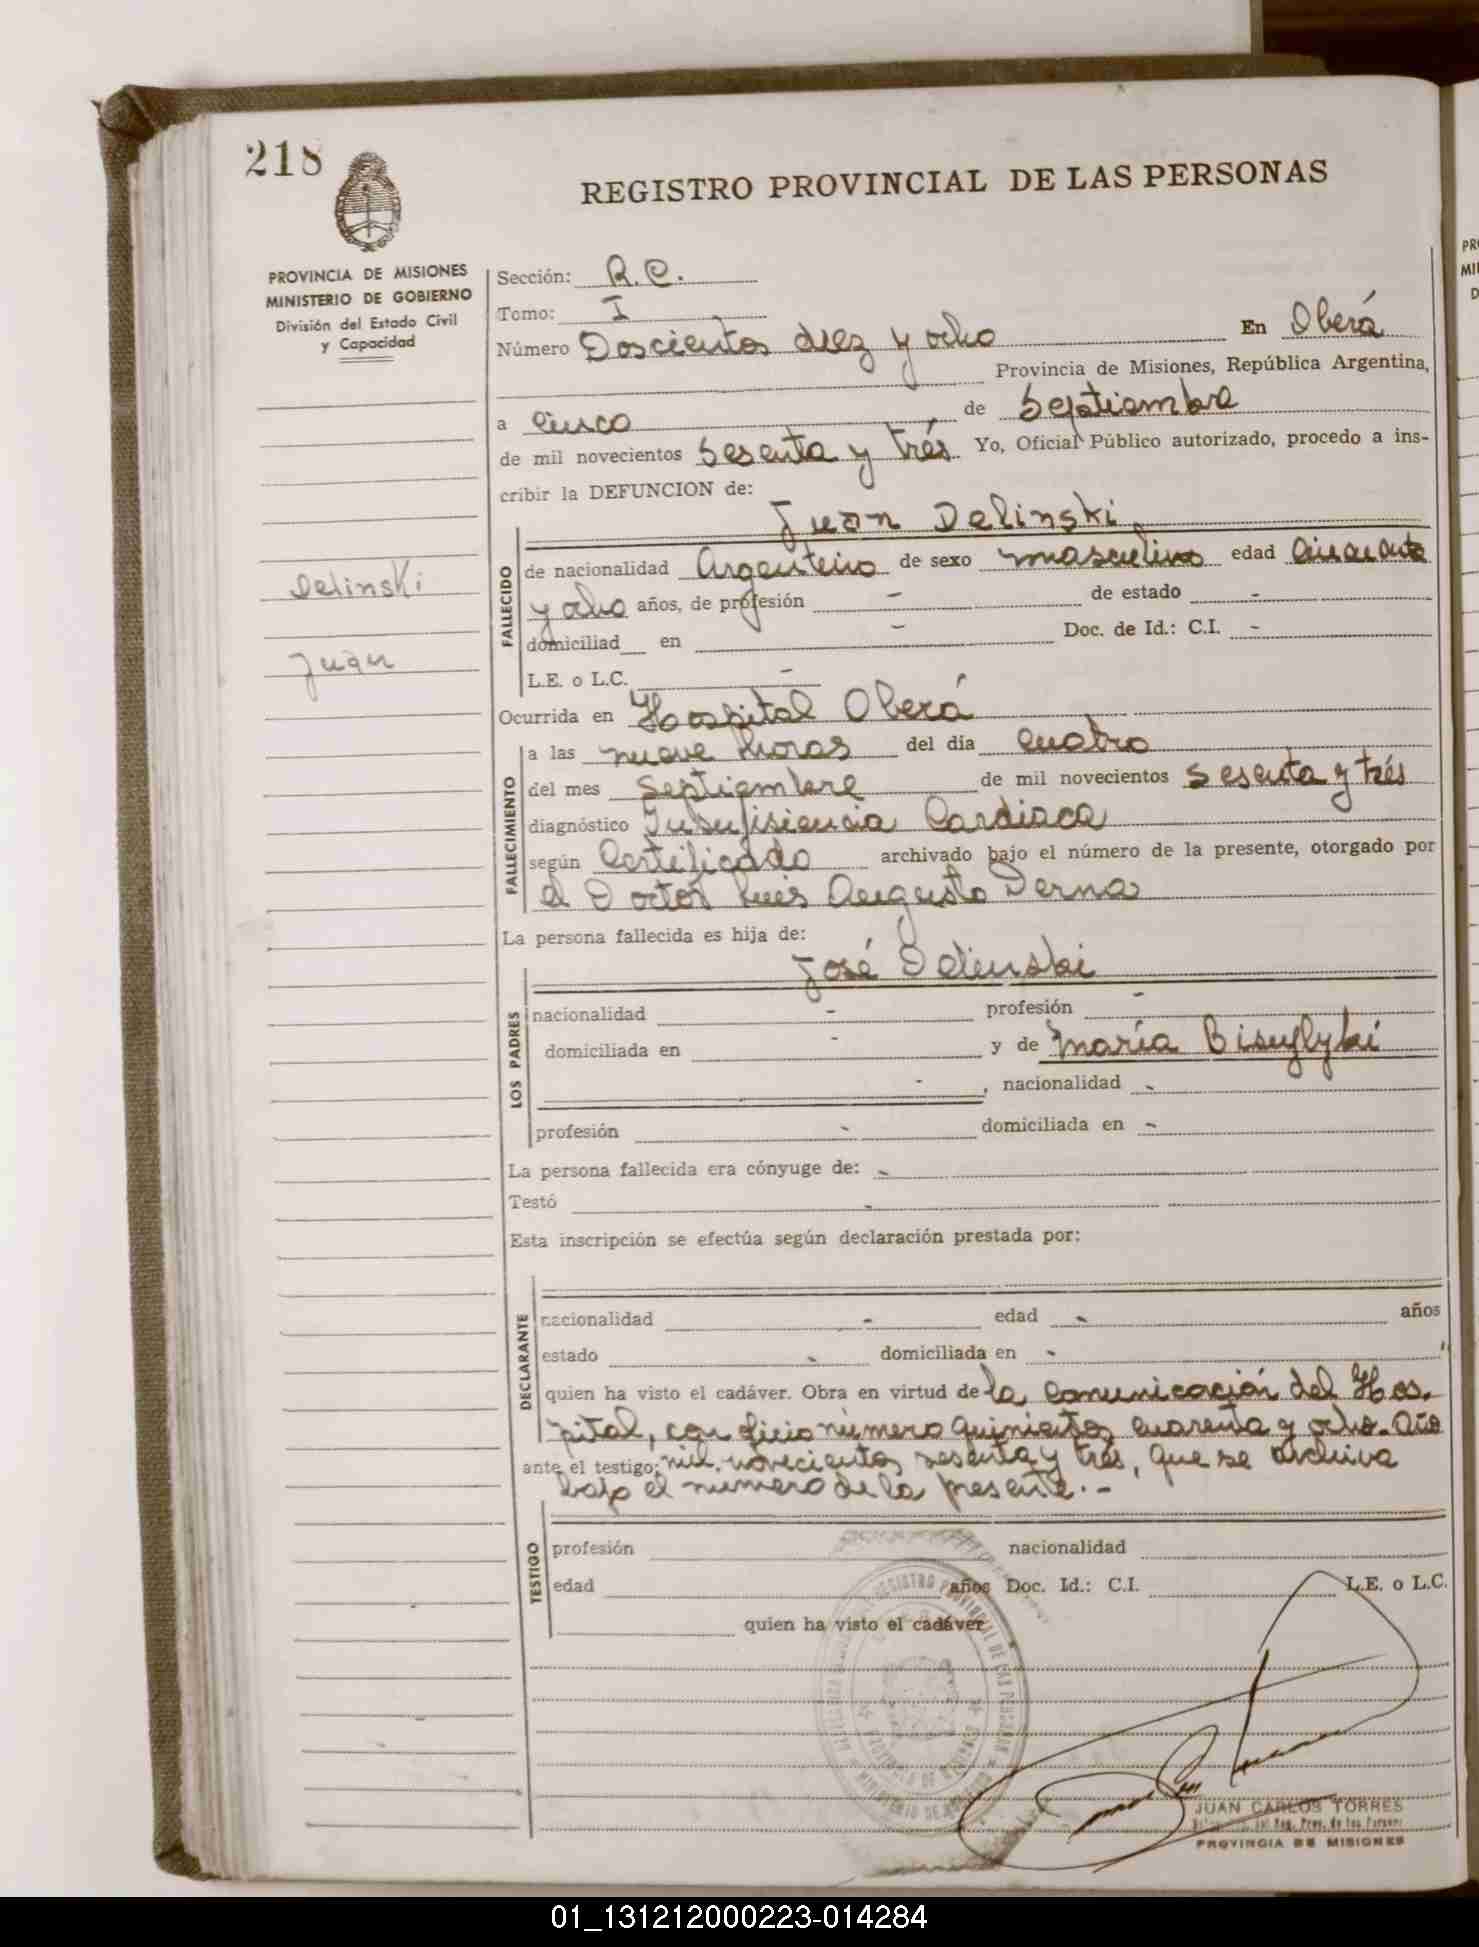 218
REGISTRO PROVINCIAL DE LAS PERSONAS
PROVINCIA DE MISIONES
MINISTERIO DE GOBIERNO
División del Estado Civil
y Capacidad
Sección: R.C.
Tomo: I
Número Doscientos diez y ocho En Oberá
Provincia de Misiones, República Argentina,
a cinco de Septiembre
de mil novecientos Sesenta y trés Yo, Oficial Público autorizado, procedo a ins-
cribir la DEFUNCION de:
Juan Delinski
Delinski
Juan
FALLECIDO
de nacionalidad Argentino de sexo masculino edad Cincuenta
y ocho años, de profesión - de estado -
domiciliad en - Doc. de Id.: C.I. -
L.E. o L.C. -
Ocurrida en Hospital Oberá
FALLECIMIENTO
a las nueve horas del día cuatro
del mes Septiembre de mil novecientos Sesenta y trés
diagnóstico Insufisiencia Cardiaca
según Certificado archivado bajo el número de la presente, otorgado por
el Doctor Luis Augusto Derna
La persona fallecida es hija de:
José Delinski
LOS PADRES
nacionalidad - profesión -
domiciliada en - y de María
- , nacionalidad -
profesión - domiciliada en -
La persona fallecida era cónyuge de: -
Testó -
Esta inscripción se efectúa según declaración prestada por:
DECLARANTE
nacionalidad - edad - años
estado - domiciliada en -
quien ha visto el cadáver. Obra en virtud de la comunicación del Hos-
pital, con oficio número quinientos cuarenta y ocho. Año
ante el testigo: mil novecientos sesenta y trés, que se archiva
bajo el numero de la presente.-
TESTIGO
profesión nacionalidad
edad años Doc. Id.: C.I. L.E. o L.C.
quien ha visto el cadáver
REGISTRO PROVINCIAL DE LAS PERSONAS
JUAN CARLOS TORRES
PROVINCIA DE MISIONES
01_131212000223-014284